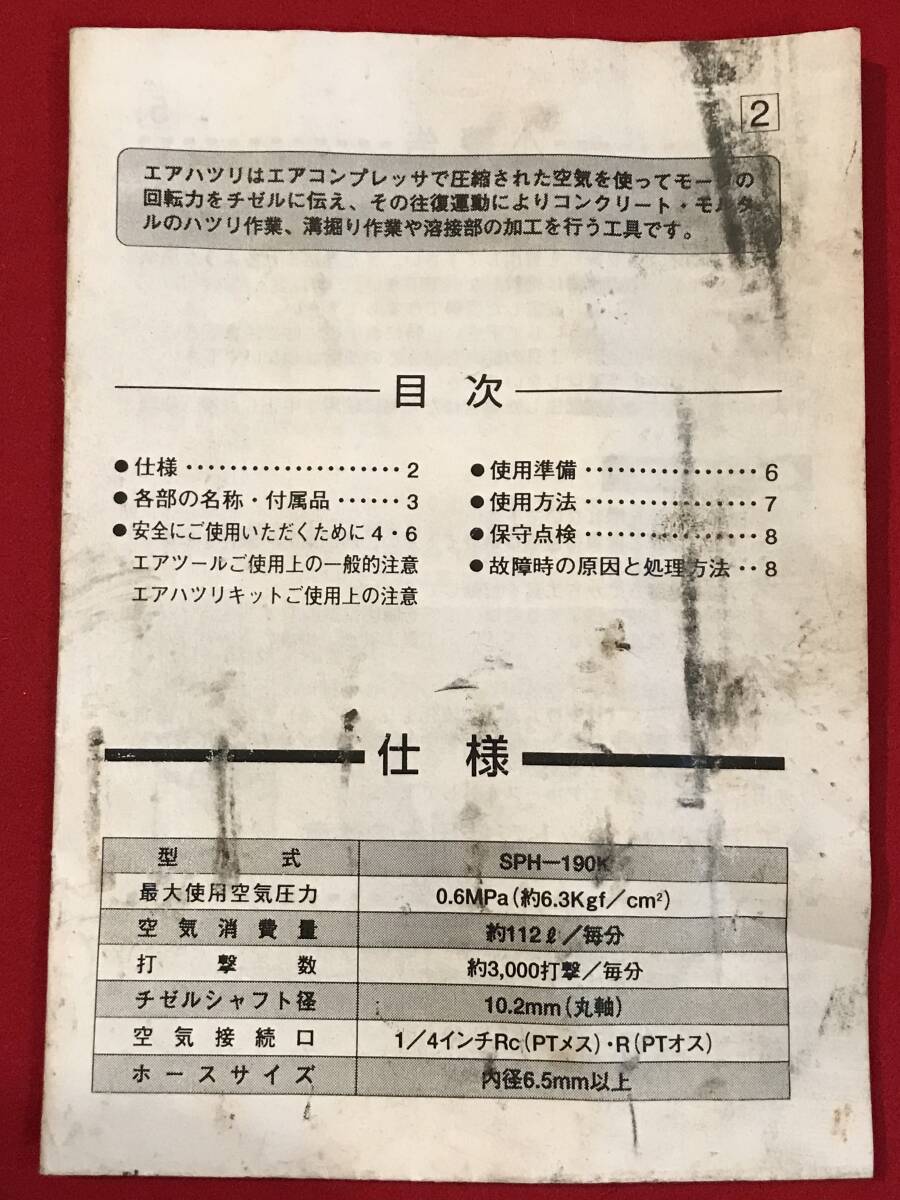 2
エアハツリはエアコンプレッサで圧縮された空気を使ってモータの
回転力をチゼルに伝え、その往復運動によりコンクリート・モルタ
ルのハツリ作業、溝掘り作業や溶接部の加工を行う工具です。
目 次
●仕様・・・・・・・・・・・・・・・・・・・・2
●各部の名称・付属品・・・・・・3
●安全にご使用いただくために 4・6
エアツールご使用上の一般的注意
エアハツリキットご使用上の注意
●使用準備・・・・・・・・・・・・・・・・6
●使用方法・・・・・・・・・・・・・・・・7
●保守点検・・・・・・・・・・・・・・・・8
●故障時の原因と処理方法・・8
仕 様
型 式 SPH−190K
最大使用空気圧力 0.6MPa(約6.3Kgf/cm²)
空気消費量 約112ℓ/毎分
打撃数 約3,000打撃/毎分
チゼルシャフト径 10.2mm(丸軸)
空気接続口 1/4インチRc(PTメス)・R(PTオス)
ホースサイズ 内径6.5mm以上